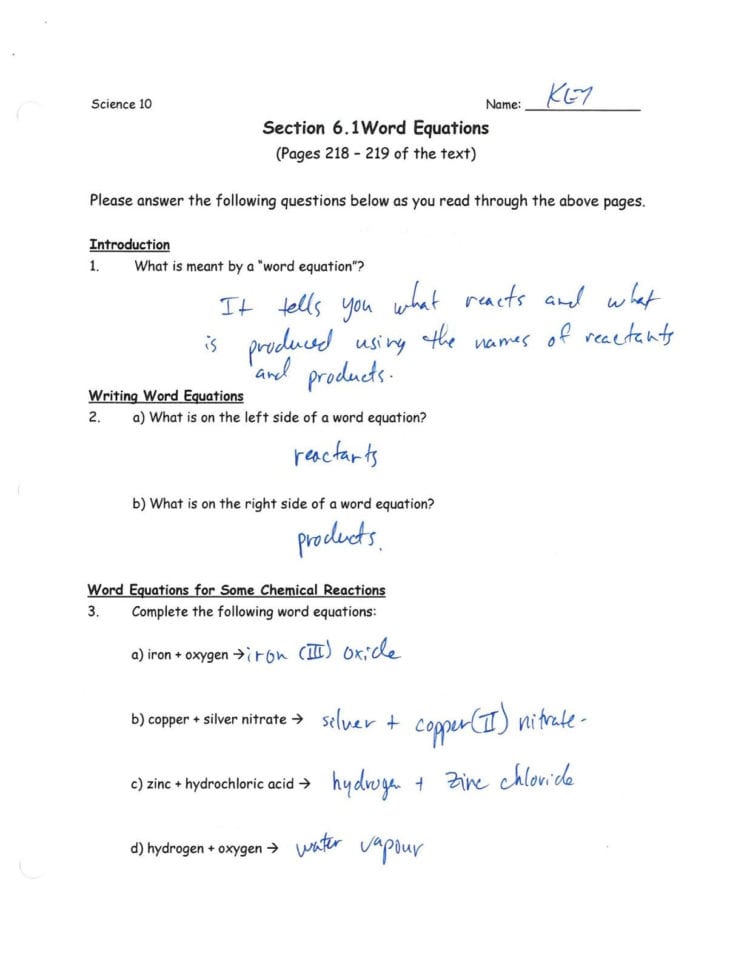 Science 10 Name: KEY
Section 6.1Word Equations
(Pages 218 - 219 of the text)
Please answer the following questions below as you read through the above pages.
Introduction
1. What is meant by a "word equation"?
It tells you what reacts and what
is produced using the names of reactants
and products.
Writing Word Equations
2. a) What is on the left side of a word equation?
reactants
b) What is on the right side of a word equation?
products.
Word Equations for Some Chemical Reactions
3. Complete the following word equations:
a) iron + oxygen → iron (III) oxide
b) copper + silver nitrate → silver + copper(II) nitrate.
c) zinc + hydrochloric acid → hydrogen + zinc chloride
d) hydrogen + oxygen → water vapour